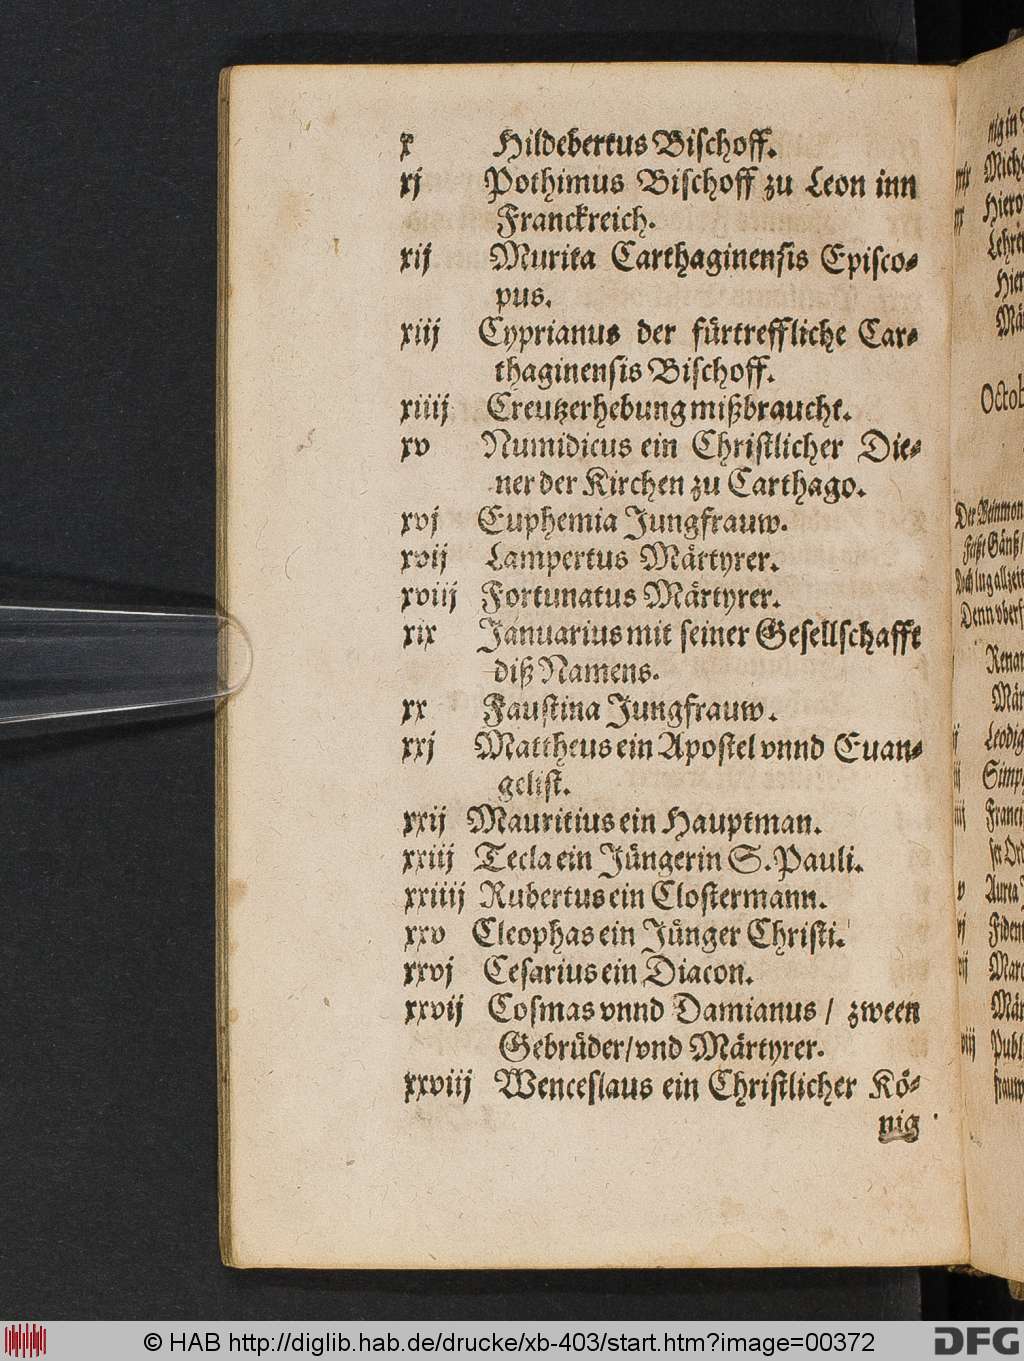 x Hildebertus Bischoff.
xj Pothimus Bischoff zu Leon inn
Franckreich.
xij Murita Carthaginensis Episco⸗
pus.
xiij Cyprianus der fürtreffliche Car⸗
thaginensis Bischoff.
xiiij Creutzerhebung mißbraucht.
xv Numidicus ein Christlicher Die⸗
ner der Kirchen zu Carthago.
xvj Euphemia Jungfrauw.
xvij Lampertus Märtyrer.
xviij Fortunatus Märtyrer.
xix Januarius mit seiner Gesellschafft
diß Namens.
xx Faustina Jungfrauw.
xxj Mattheus ein Apostel vnnd Euan⸗
gelist.
xxij Mauritius ein Hauptman.
xxiij Tecla ein Jüngerin S. Pauli.
xxiiij Rubertus ein Clostermann.
xxv Cleophas ein Jünger Christi.
xxvj Cesarius ein Diacon.
xxvij Cosmas vnnd Damianus / zween
Gebrüder/vnd Märtyrer.
xxviij Wenceslaus ein Christlicher Kö⸗
nig
Octob
Der Weinmon
© HAB http://diglib.hab.de/drucke/xb-403/start.htm?image=00372
DFG